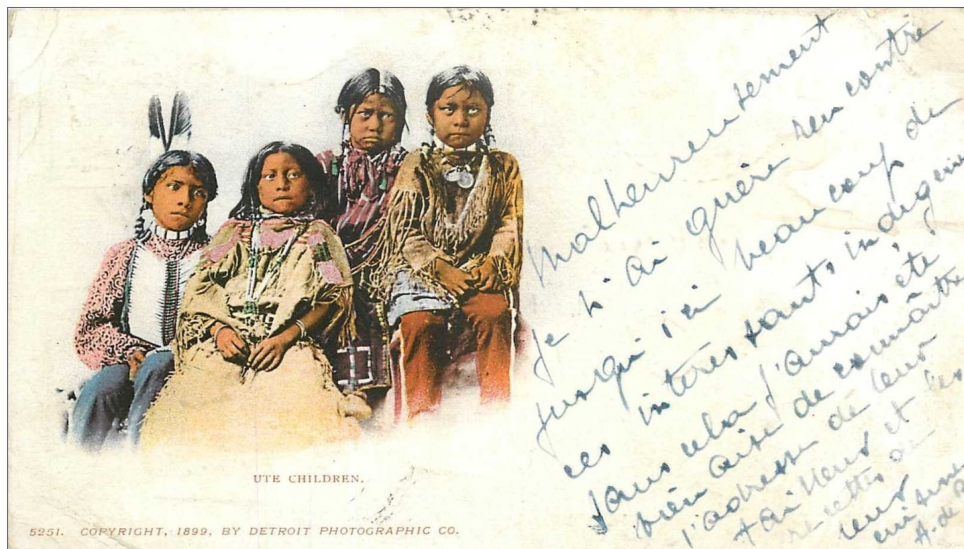 UTE CHILDREN.
5251. COPYRIGHT, 1899, BY DETROIT PHOTOGRAPHIC CO.
Malheureusement
je n'ai guère rencontre
jusqu'ici beaucoup de
ces interessants indigène
sans cela j'aurais été
bien aise de connaître
l'adresse de leur
tailleur et les
recettes de
leur
cuisine
A. de